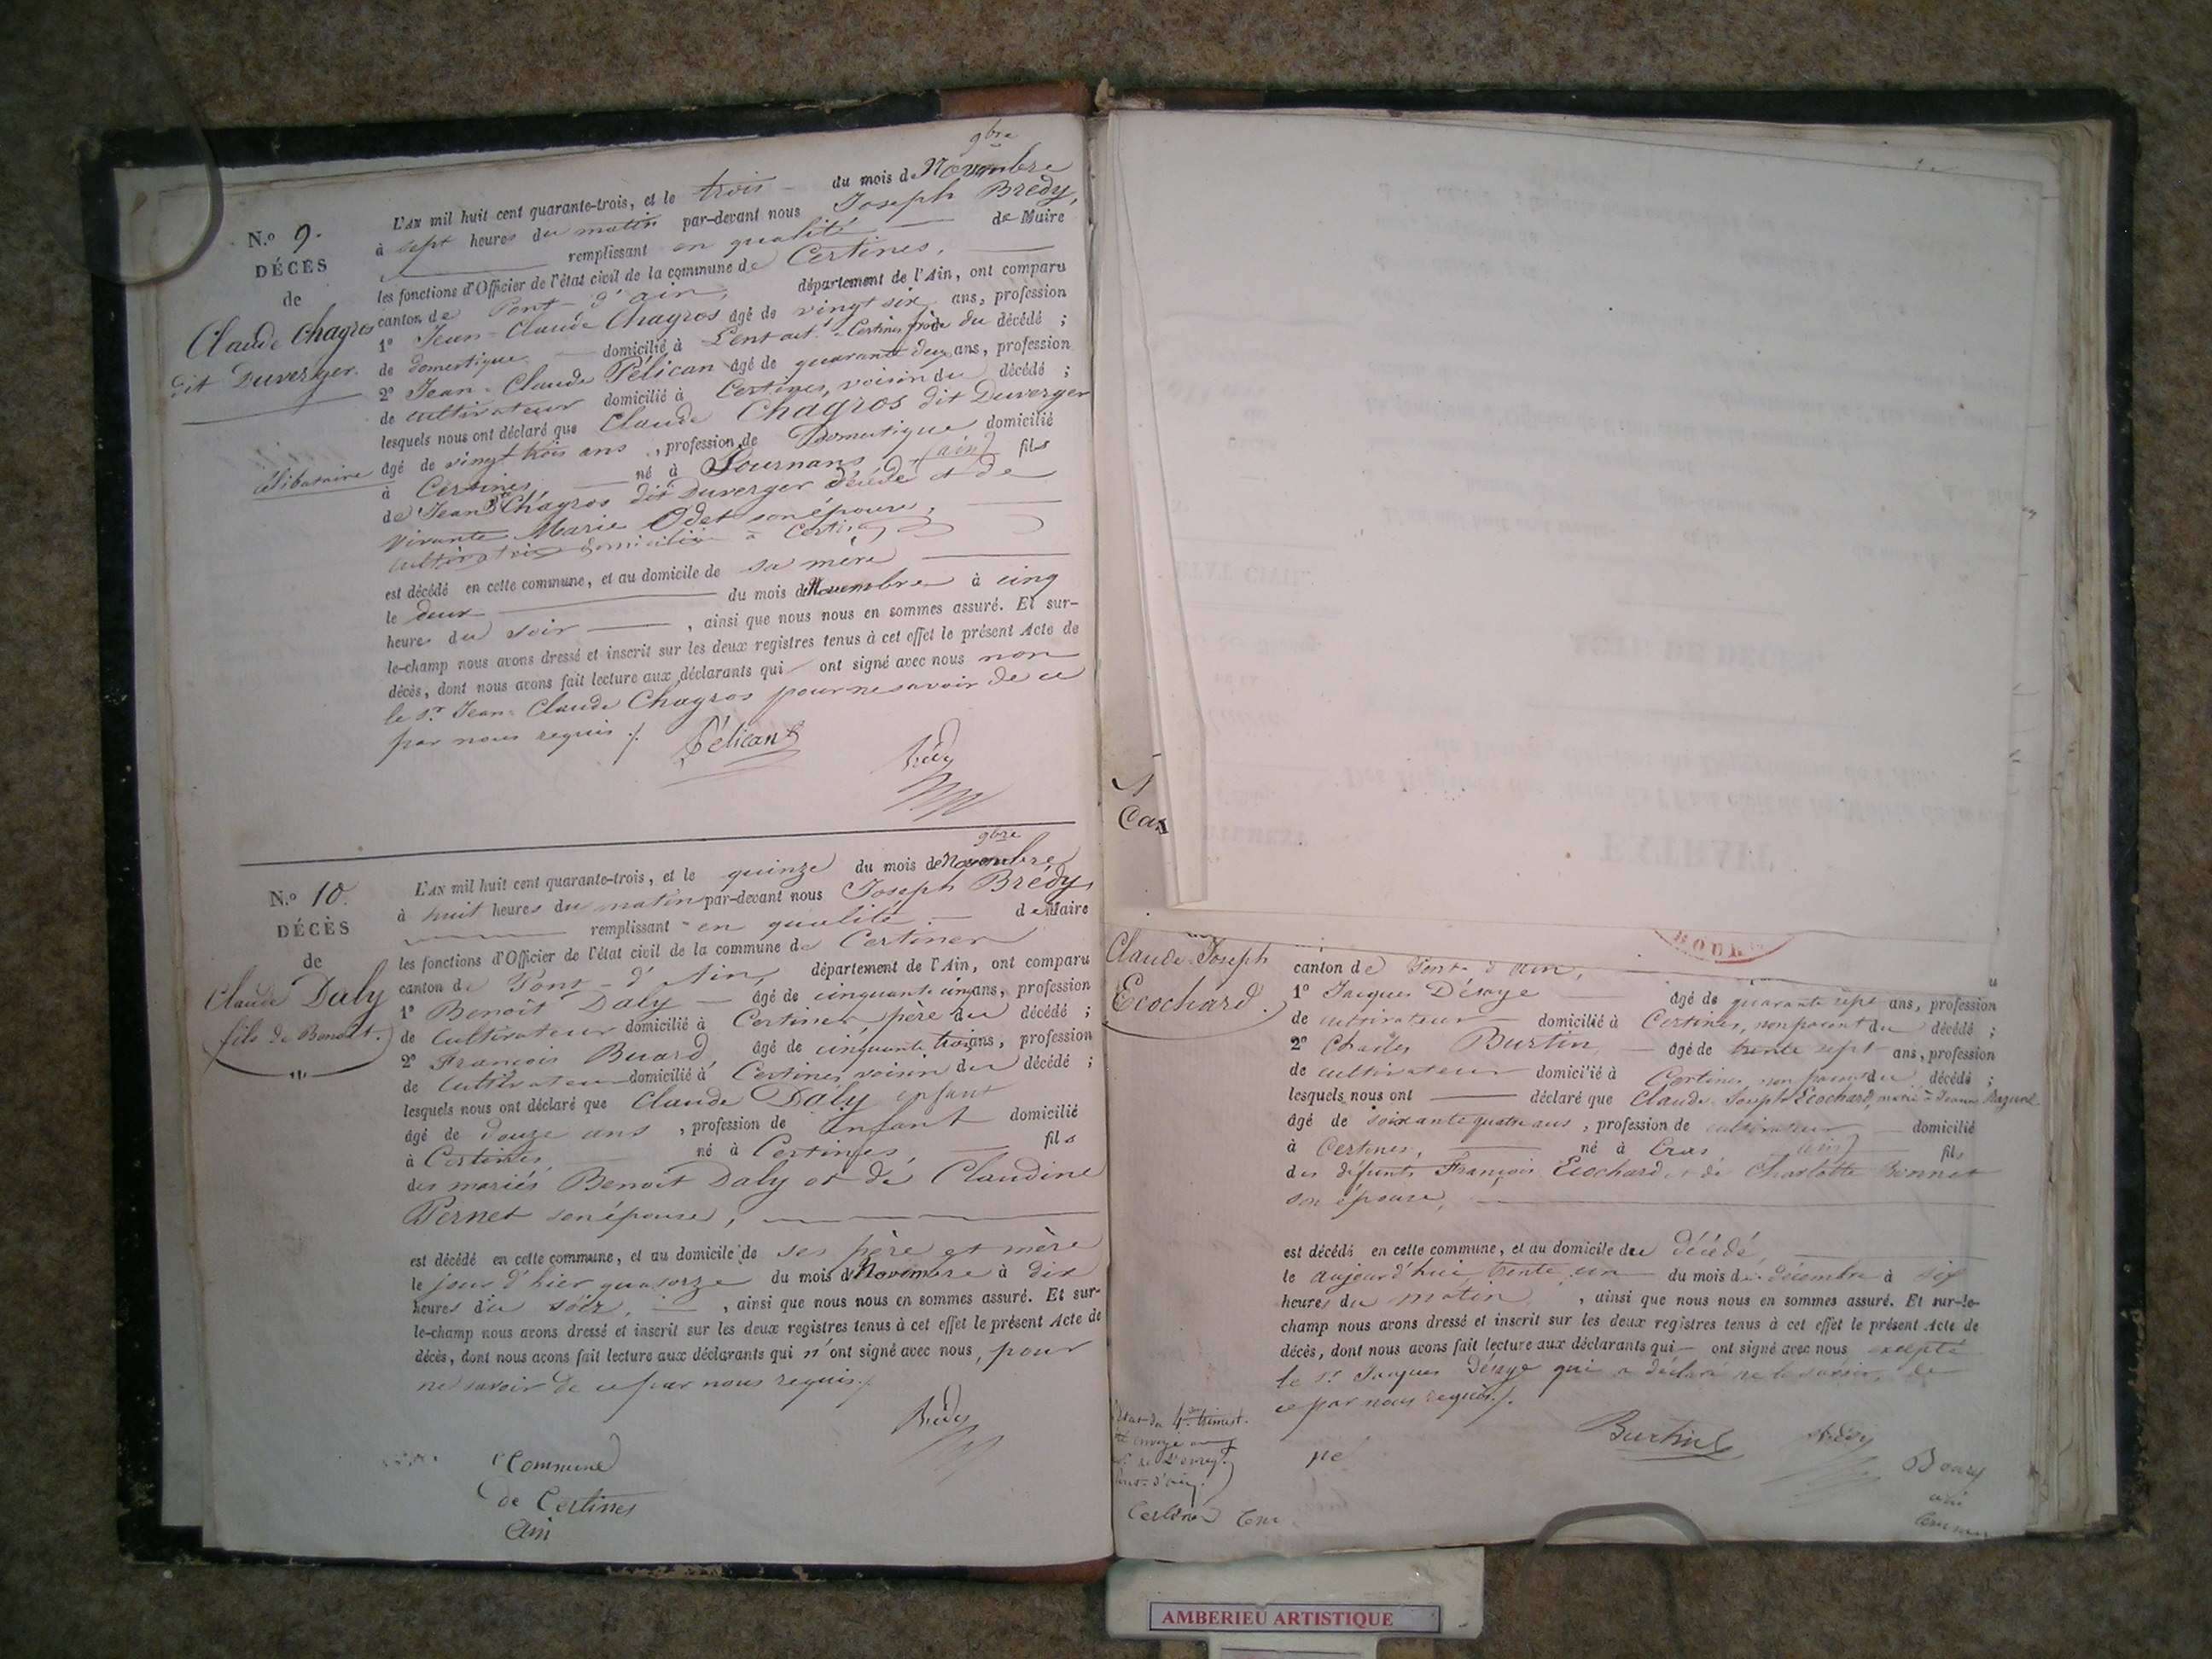 9bre
N.º 9.
DÉCÈS
de
Claude Chagros
dit Duverger.
célibataire
L'AN mil huit cent quarante-trois, et le trois du mois de Novembre
à sept heures du matin par-devant nous Joseph Brédy,
remplissant en qualité de Maire
les fonctions d'Officier de l'état civil de la commune de Certines,
canton de Pont-d'ain, département de l'Ain, ont comparu
1º Jean-Claude Chagros âgé de vingt six ans, profession
de domestique domicilié à Certines frère du décédé ;
2º Jean-Claude Pélican âgé de quarante deux ans, profession
de cultivateur domicilié à Certines, voisin du décédé ;
lesquels nous ont déclaré que Claude Chagros dit Duverger
âgé de vingt trois ans, profession de Domestique domicilié
à Certines, né à Journans (ain) fils
de Jean Chagros dit Duverger décédé et de
vivante Marie Odet son épouse,
cultivatrice domiciliée à Certines
est décédé en cette commune, et au domicile de sa mère
le deux du mois de Novembre à cinq
heures du soir, ainsi que nous nous en sommes assuré. Et sur-
le-champ nous avons dressé et inscrit sur les deux registres tenus à cet effet le présent Acte de
décès, dont nous avons fait lecture aux déclarants qui ont signé avec nous non
le Sr. Jean-Claude Chagros pour ne savoir de ce
par nous requis ./.
Pélican
Brédy
9bre
N.º 10.
DÉCÈS
de
Claude Daly
fils de Benoît.
L'AN mil huit cent quarante-trois, et le quinze du mois de Novembre
à huit heures du matin par-devant nous Joseph Brédy,
remplissant en qualité de Maire
les fonctions d'Officier de l'état civil de la commune de Certines
canton de Pont-d'Ain, département de l'Ain, ont comparu
1º Benoît Daly âgé de cinquante cinq ans, profession
de Cultivateur domicilié à Certines, père du décédé ;
2º François Buard, âgé de cinquante trois ans, profession
de Cultivateur domicilié à Certines voisin du décédé ;
lesquels nous ont déclaré que Claude Daly enfant
âgé de douze ans, profession de Enfant domicilié
à Certines né à Certines, fils
des mariés Benoît Daly et de Claudine
Pernet son épouse,
est décédé en cette commune, et au domicile de ses père et mère
le jour d'hier quatorze du mois de Novembre à dix
heures du soir, ainsi que nous nous en sommes assuré. Et sur-
le-champ nous avons dressé et inscrit sur les deux registres tenus à cet effet le présent Acte de
décès, dont nous avons fait lecture aux déclarants qui n'ont signé avec nous, pour
ne savoir de ce par nous requis ./.
Brédy
Commune
de Certines
Ain
Claude-Joseph
Ecochard.
canton de Pont-d'ain,
1º Jacques Désaye âgé de quarante sept ans, profession
de cultivateur domicilié à Certines, non parent du décédé ;
2º Charles Burtin âgé de trente sept ans, profession
de cultivateur domicilié à Certines non parent du décédé ;
lesquels nous ont déclaré que Claude-Joseph Ecochard, marié à Jeanne
âgé de soixante quatre ans, profession de cultivateur domicilié
à Certines, né à Cras (ain) fils
des défunts François Ecochard et de Charlotte Bonnet
son épouse,
est décédé en cette commune, et au domicile du décédé,
le aujourd'hui trente un du mois de décembre à six
heures du matin, ainsi que nous nous en sommes assuré. Et sur-le-
champ nous avons dressé et inscrit sur les deux registres tenus à cet effet le présent Acte de
décès, dont nous avons fait lecture aux déclarants qui ont signé avec nous excepté
le Sr. Jacques Désaye qui a déclaré ne le savoir, de
ce par nous requis ./.
Burtin
Brédy
du 4e trimest.
Certines
BOUR
AMBERIEU ARTISTIQUE